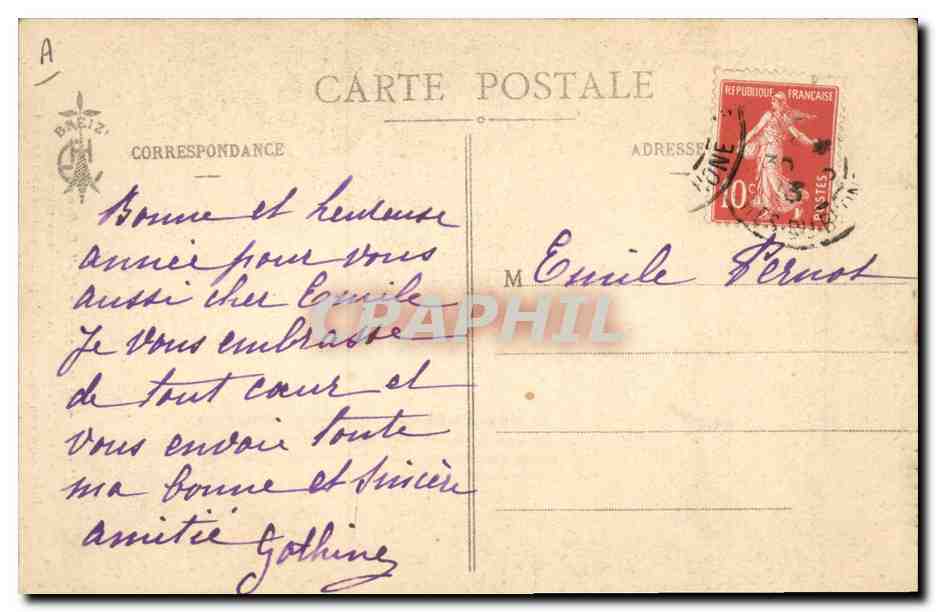 A
CARTE POSTALE
BREIZ
CORRESPONDANCE
ADRESSE
REPUBLIQUE FRANÇAISE
10c
POSTES
Bonne et heureuse
année pour vous
aussi cher Emile
Je vous embrasse
de tout cœur et
vous envoie toute
ma bonne et sincère
amitié
M Emile Pernot
CPAPHIL